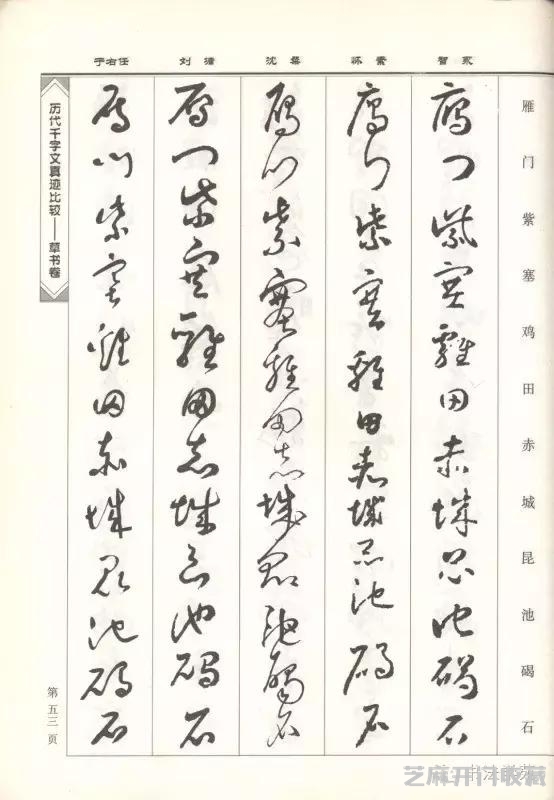 智永
怀素
沈粲
刘墉
于右任
雁门紫塞鸡田赤城昆池碣石
鴈門紫塞雞田赤城昆池碣石
鴈門紫塞雞田赤城昆池碣石
鴈門紫塞雞田赤城昆池碣石
鴈門紫塞雞田赤城昆池碣石
鴈門紫塞雞田赤城昆池碣石
历代千字文真迹比较——草书卷
第五三页
芝麻开门收藏